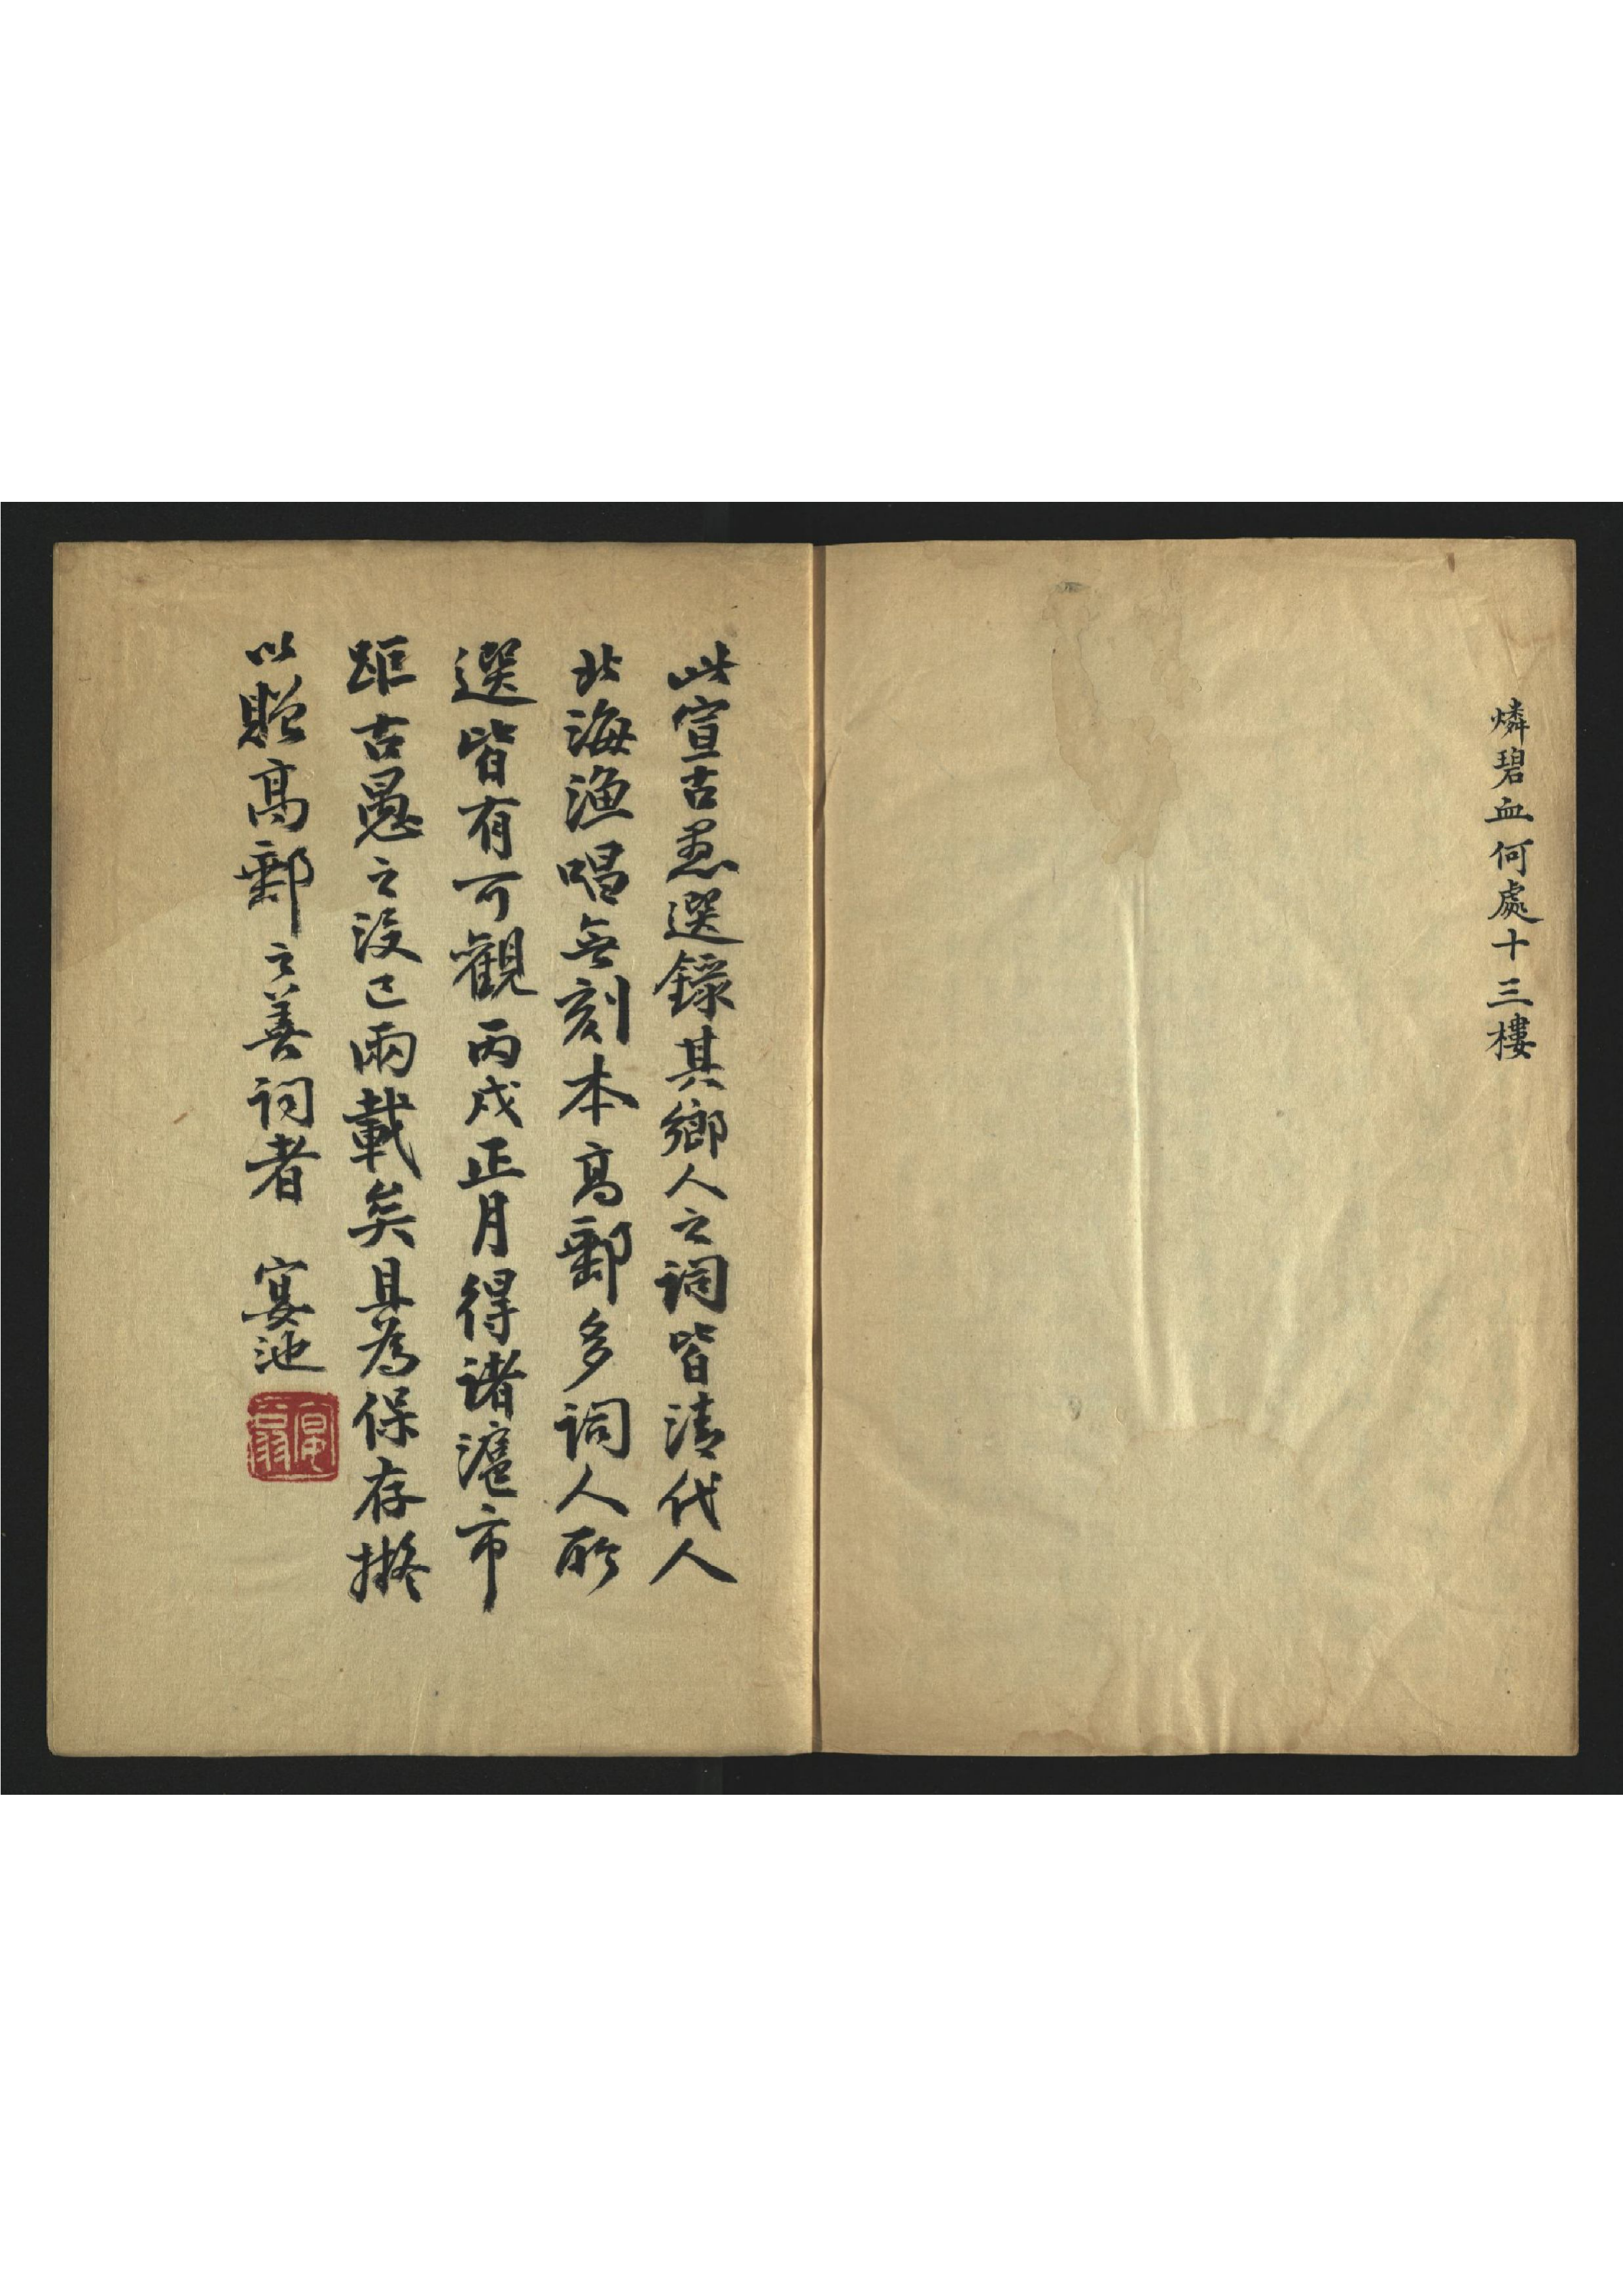 燐碧血何處十三樓
此宣古愚選錄其鄉人之詞皆清代人
北海漁唱無刻本高郵多詞人所
選皆有可觀丙戌正月得諸滬市
距古愚之沒已兩載矣具為保存擬
以貽高郵之善詞者 宴池